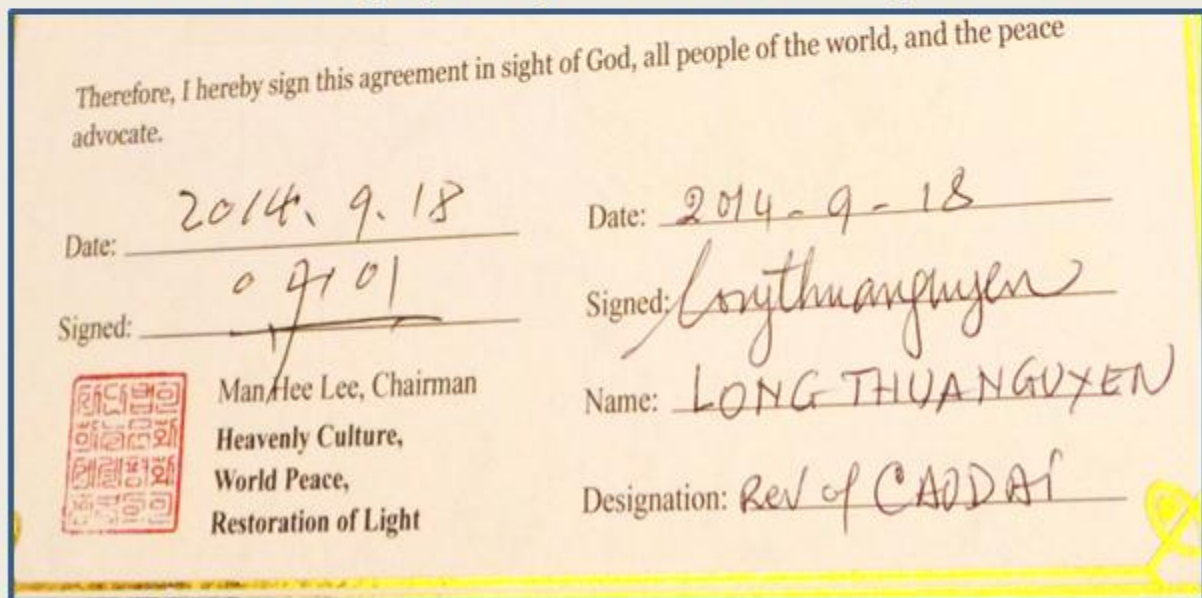 Therefore, I hereby sign this agreement in sight of God, all people of the world, and the peace
advocate.
Date: 2014. 9. 18
Signed:
Man Hee Lee, Chairman
Heavenly Culture,
World Peace,
Restoration of Light
Date: 2014 - 9 - 18
Signed: Longthuanguyen
Name: LONG THUANGUYEN
Designation: Rev of CAODAI